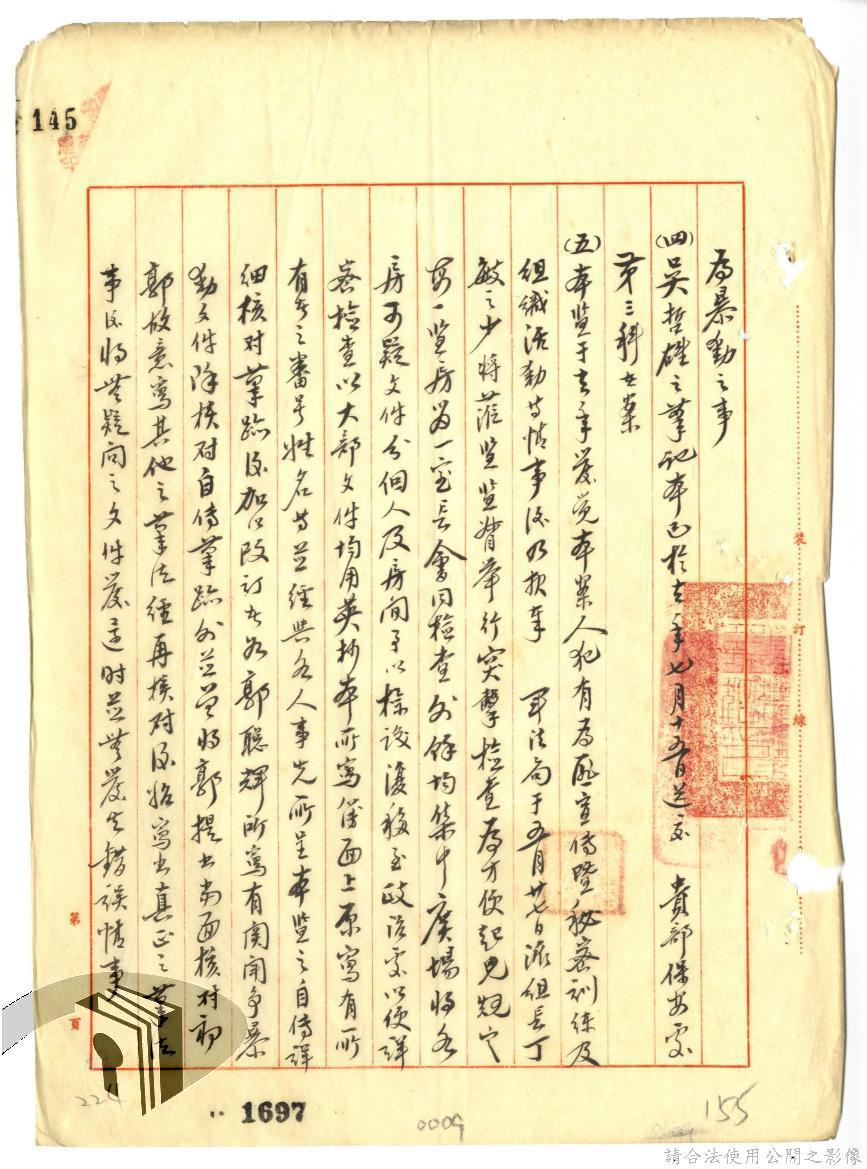 145
為暴動之事
(四)吳哲雄之筆記本已於去年七月十五日送交 貴部保安處
第三科在案
(五)本監于去年發覺本案人犯有為匪宣傳暨秘密訓練及
組織活動等情事後乃報奉 軍法局于五月廿七日派組長丁
敏之少將蒞監監督舉行突擊檢查為方便起見規定
每一監房留一室長會同檢查外餘均集中廣場將各
房可疑文件分個人及房間予以標識後移至政治處以便詳
密檢查以大部文件均用英抄本所寫簿面上原寫有所
有者之番号姓名等並經與各人事先所呈本監之自傳詳
細核对筆跡後加以改訂者如郭聰輝所寫有関鬧爭暴
動文件除核对自傳筆跡外並曾將郭提出当面核对初
郭故意寫其他之筆法經再核对後始寫出真正之筆法
事後將無疑问之文件發還时並無發生錯誤情事
裝
訂
線
第
頁
224
1697
0009
155
請合法使用公開之影像